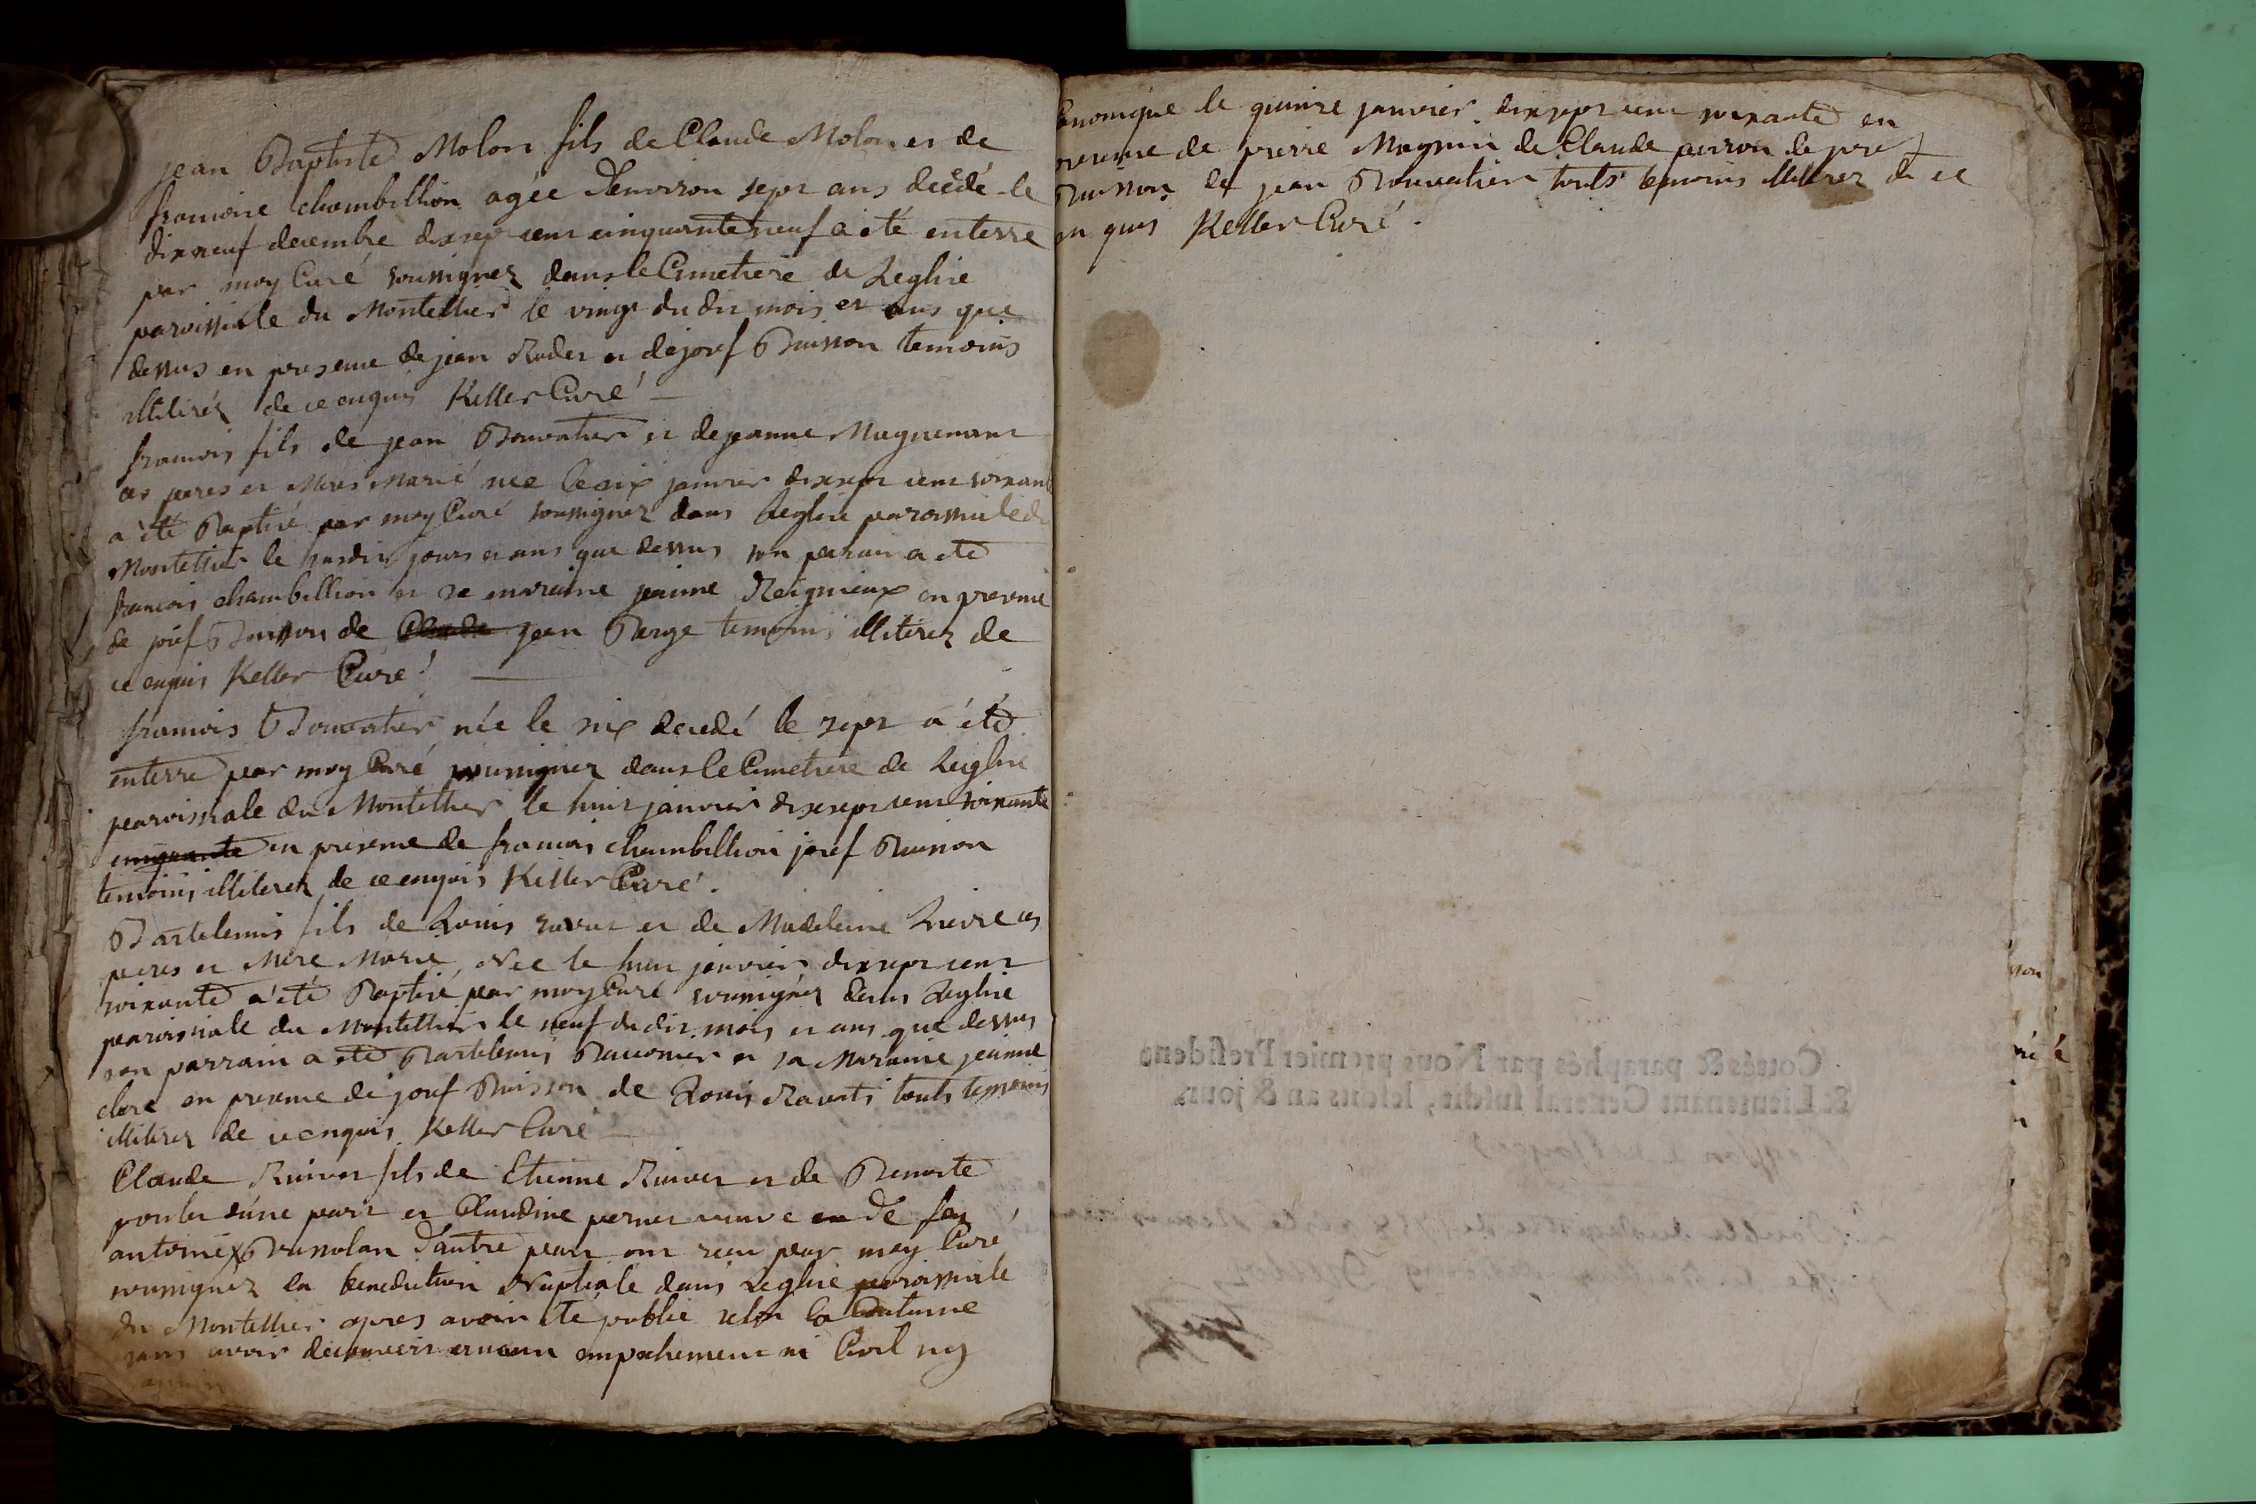 jean Baptiste Molon fils de Claude Molon et de
francoise chambellion agée denviron sept ans decedé le
dixneuf decembre dixsept cent cinquante neuf a été enterre
par moy Curé soussignez dans le Cimetiere de Leglise
paroissiale du Montellier le vingt du dit mois et ans que
dessus en presence de jean Rudet et de josef Buisson temoins
illiterez de ce enquis Keller Curé
francois fils de jean Bouvatier et de jeanne Magnenant
ces peres et Meres Marié nee le six janvier dixsept cent soixante
a été Baptisé par moy Curé soussignez dans leglise paroissiale du
Montellier le susdit jours et ans que dessus son parain a été
francois chambellion et sa maraine jeanne Reignieux en presence
de josef Buisson de Claude jean Berge temoins illiterez de
ce enquis Keller Curé
francois Bouvatier née le six decedé le sept a été
enterre par moy Curé soussignez dans le Cimetiere de Leglise
paroissiale du Montellier le huit janvier dixsept cent soixante
cinquante en presence de francois chambellion josef Buisson
temoins illiterez de ce enquis Keller Curé
Bartelemis fils de Louis ravat et de Madeleine Lievre ces
peres et Mere Marie Née le huit janvier dixsept cent
soixante a été Baptisé par moy Curé soussignez dans Leglise
paroissiale du Montellier le neuf du dit mois et ans que dessus
son parrain a été Bartelemis et sa Maraine jeanne
clere en presence de josef Buisson de Louis touts temoins
illiterez de ce enquis Keller Curé
Claude fils de Etienne et de Benoite
poulet dune part et Claudine pernet veuve en de feu
antoine dautre part ont recu par moy Curé
soussignez la benediction Nuptiale dans Leglise paroissiale
du Montellier apres avoir été publié selon la Coutume
sans avoir decouvert aucun empechement ni Civil ny
canonique le quinze janvier dixsept cent soixante en
presence de pierre Magnin de Claude perron de josef
Buisson de jean Bouvatier touts temoins illiterez de ce
en quis Keller Curé
Cottés & paraphés par Nous premier President
& Lieutenant General susdit, lesdits an & jour.